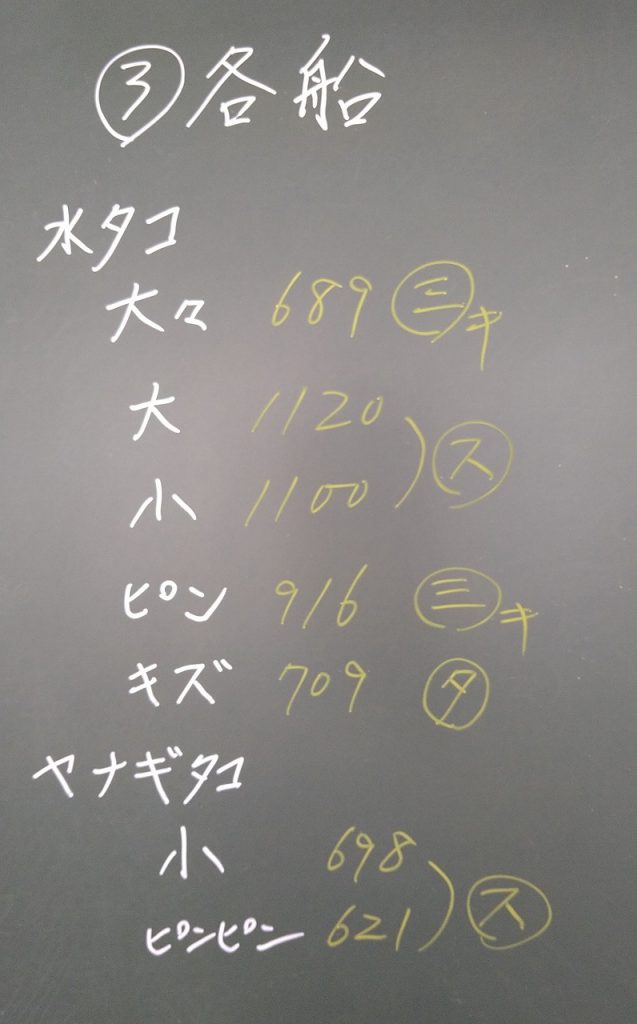 ③各船
水タコ
大々 689 ㊂キ
大 1120
小 1100 ) ㋜
ピン 916 ㊂キ
キズ 709 ㋟
ヤナギタコ
小 698
ピンピン 621 ) ㋜